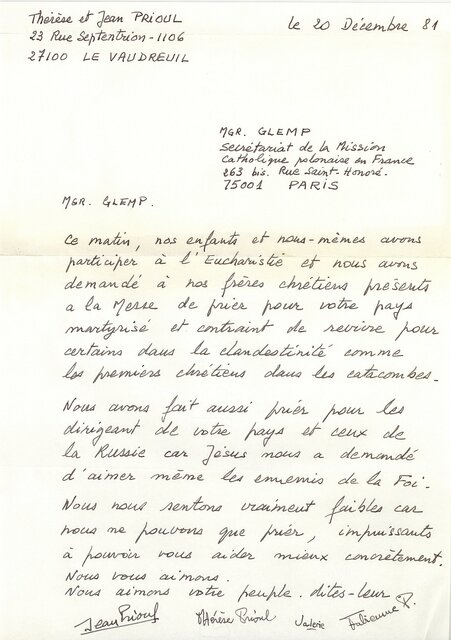 Thérèse et Jean PRIOUL
le 20 Décembre 81
23 Rue Septentrion - 1106
27100 LE VAUDREUIL
MGR. GLEMP
Secrétariat de la Mission
Catholique polonaise en France
263 bis. Rue Saint-Honoré.
75001 PARIS
MGR. GLEMP.
Ce matin, nos enfants et nous-mêmes avons
participer à l'Eucharistie et nous avons
demandé à nos frères chrétiens présents
a la Messe de prier pour votre pays
martyrisé et contraint de revivre pour
certains dans la clandestinité comme
les premiers chrétiens dans les catacombes.
Nous avons fait aussi prier pour les
dirigeant de votre pays et ceux de
la Russie car Jésus nous a demandé
d'aimer même les ennemis de la Foi.
Nous nous sentons vraiment faibles car
nous ne pouvons que prier, impuissants
à pouvoir vous aider mieux concrètement.
Nous vous aimons.
Nous aimons votre peuple. dites-leur
Jean Prioul Thérèse Prioul Valérie Fabienne P.